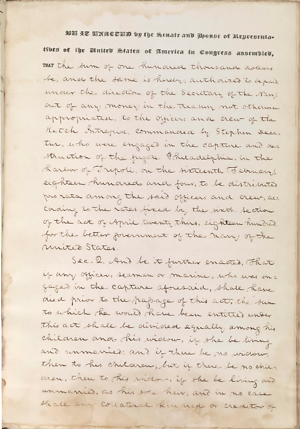 BE IT ENACTED by the Senate and House of Representa-
tives of the United States of America in Congress assembled,
THAT the sum of one hundred thousand dollars
be, and the same is hereby, authorized to be paid
under the direction of the Secretary of the Navy,
out of any money in the Treasury not otherwise
appropriated, to the officers and crew of the
Ketch Intrepid, commanded by Stephen Deca-
tur, who were engaged in the capture and des-
truction of the frigate Philadelphia, in the
harbor of Tripoli, on the sixteenth February,
eighteen hundred and four, to be distributed
pro rata among the said officers and crew, ac-
cording to the rates fixed by the sixth section
of the act of April twenty three, eighteen hundred
for the better government of the Navy of the
United States.
Sec. 2. And be it further enacted, That
if any officer, seaman or marine, who was en-
gaged in the capture aforesaid, shall have
died prior to the passage of this act, the sum
to which he would have been entitled under
this act shall be divided equally among his
children and his widow, if she be living
and unmarried; and if there be no widow,
then to his children, but if there be no chil-
dren, then to his widow, if she be living and
unmarried, as his sole heir, and in no case
shall any collateral kindred or creditor of